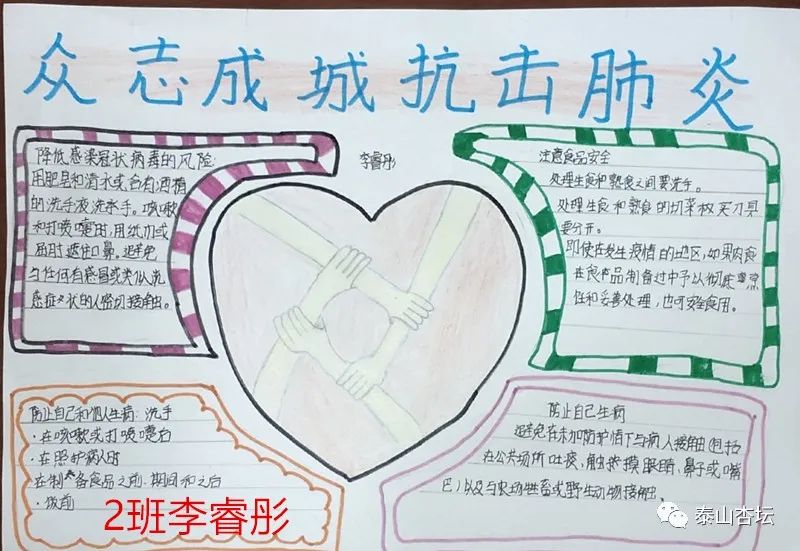 众志成城抗击肺炎
降低感染冠状病毒的风险:
用肥皂和清水或含有酒精
的洗手液洗手。咳嗽
和打喷嚏时,用纸巾或
屈肘遮住口鼻。避免
与任何有感冒或类似流
感症状的人密切接触。
李睿彤
注意食品安全
处理生食和熟食之间要洗手。
处理生食和熟食的切菜板 刀具
要分开。
即使在发生疫情的地区,如果肉食
在食品制备过中予以彻底烹
和妥善处理,也可安全食用。
防止自己和他人生病:洗手
·在咳嗽或打喷嚏后
·在照护病人时
在制备食品之前、期间和之后
·饭前
防止自己生病
避免在未加防护情下与病人接触(包括
在公共场所吐痰,触摸眼睛,鼻子或嘴
巴)以及与农场牲畜或野生动物接触。
2班李睿彤
泰山杏坛